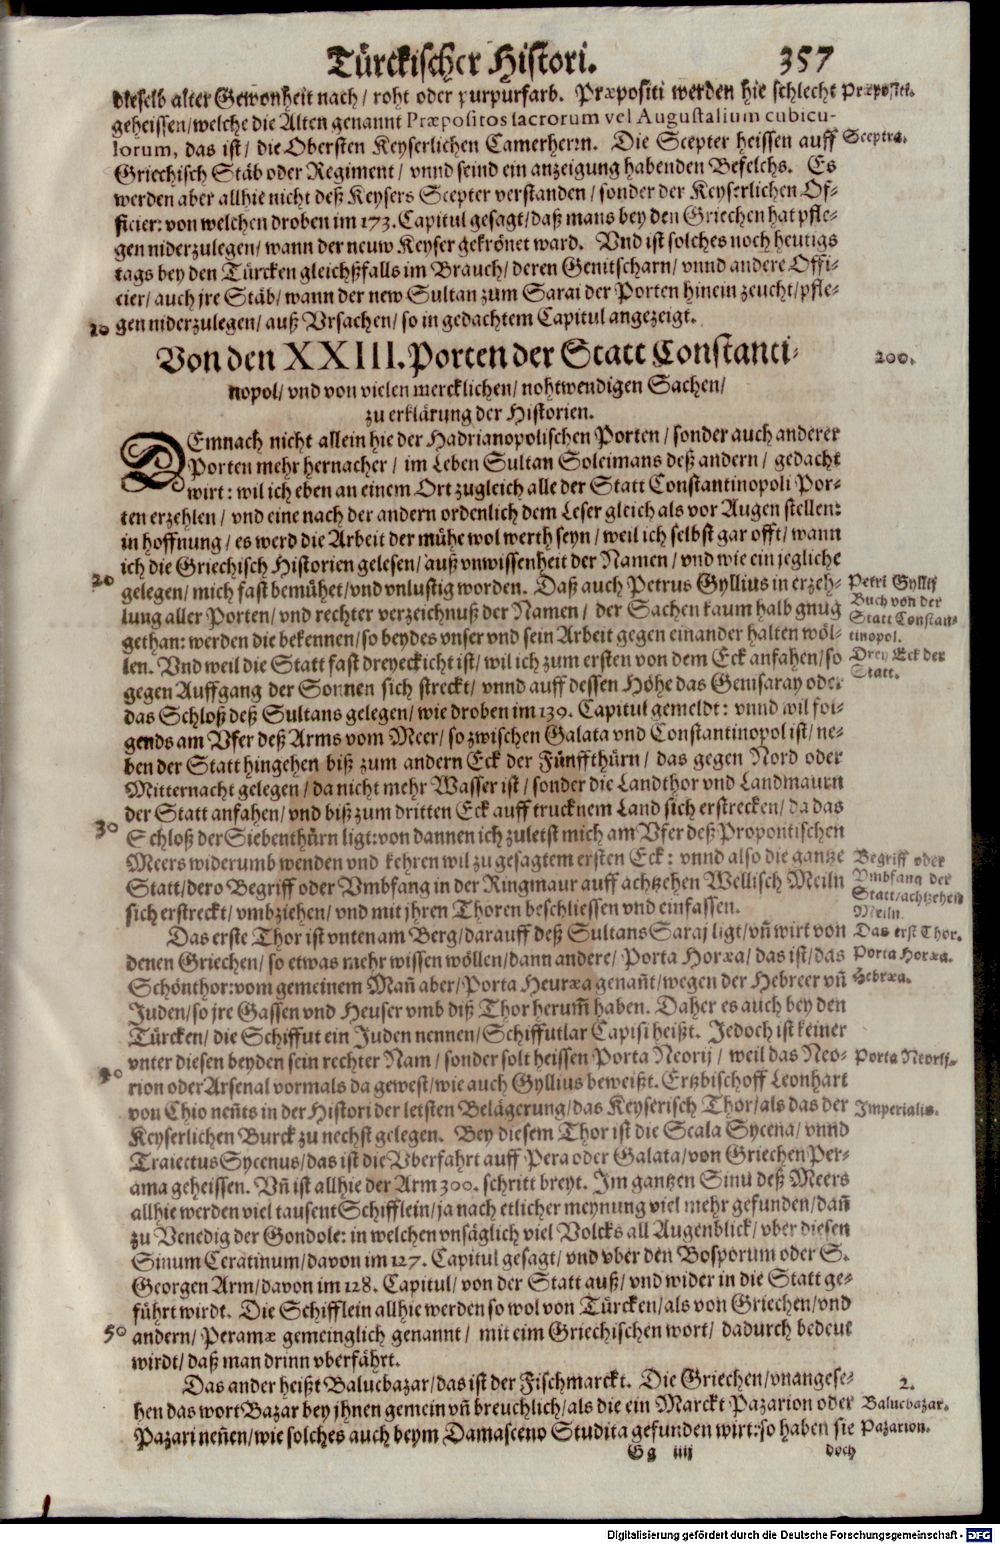 Türckischer Histori. 357
dieselb alter Gewonheit nach/ roht oder purpurfarb. Præpositi werden hie schlecht Præpositi.
geheissen/welche die Alten genannt Præpositos sacrorum vel Augustalium cubicu-
lorum, das ist/ die Obersten Keyserlichen Camerhern. Die Scepter heissen auff Sceptra.
Griechisch Stäb oder Regiment/ vnnd seind ein anzeigung habenden Befelchs. Es
werden aber allhie nicht deß Keysers Scepter verstanden/ sonder der Keyserlichen Of-
ficier: von welchen droben im 173. Capitul gesagt/ daß mans bey den Griechen hat pfle-
gen niderzulegen/ wann der neuw Keyser gekrönet ward. Vnd ist solches noch heutigs
tags bey den Türcken gleichßfalls im Brauch/ deren Genitscharn/ vnnd andere Offi-
cier/ auch jre Stäb/ wann der new Sultan zum Sarai der Porten hinein zeucht/ pfle-
10 gen niderzulegen/ auß Vrsachen/ so in gedachtem Capitul angezeigt.
Von den XXIII. Porten der Statt Constanti- 200.
nopol/ vnd von vielen mercklichen/ nohtwendigen Sachen/
zu erklärung der Historien.
DEmnach nicht allein hie der Hadrianopolischen Porten/ sonder auch anderer
Porten mehr hernacher/ im Leben Sultan Soleimans deß andern/ gedacht
wirt: wil ich eben an einem Ort zugleich alle der Statt Constantinopoli Por-
ten erzehlen/ vnd eine nach der andern ordenlich dem Leser gleich als vor Augen stellen:
in hoffnung/ es werd die Arbeit der mühe wol werth seyn/ weil ich selbst gar offt/ wann
ich die Griechisch Historien gelesen/ auß vnwissenheit der Namen/ vnd wie ein jegliche
20 gelegen/ mich fast bemühet/ vnd vnlustig worden. Daß auch Petrus Gyllius in erzeh- Petri Gyllij
lung aller Porten/ vnd rechter verzeichnuß der Namen/ der Sachen kaum halb gnug Buch von der
Statt Constan-
gethan: werden die bekennen/ so beydes vnser vnd sein Arbeit gegen einander halten wöl- tinopol.
len. Vnd weil die Statt fast dreyeckicht ist/ wil ich zum ersten von dem Eck anfahen/ so Drey Eck der
Statt.
gegen Auffgang der Sonnen sich streckt/ vnnd auff dessen Höhe das Gemsaray oder
das Schloß deß Sultans gelegen/ wie droben im 139. Capitul gemeldt: vnnd wil fol-
gends am Vfer deß Arms vom Meer/ so zwischen Galata vnd Constantinopol ist/ ne-
ben der Statt hingehen biß zum andern Eck der Fünffthürn/ das gegen Nord oder
Mitternacht gelegen/ da nicht mehr Wasser ist/ sonder die Landthor vnd Landmaurn
der Statt anfahen/ vnd biß zum dritten Eck auff trucknem Land sich erstrecken/ da das
30 Schloß der Siebenthürn ligt: von dannen ich zuletst mich am Vfer deß Propontischen
Meers widerumb wenden vnd kehren wil zu gesagtem ersten Eck: vnnd also die gantze Begriff oder
Statt/ dero Begriff oder Vmbfang in der Ringmaur auff achtzehen Wellisch Meiln Vmbfang der
Statt/achtzehen
sich erstreckt/ vmbziehen/ vnd mit jhren Thoren beschliessen vnd einfassen. Meiln.
Das erste Thor ist vnten am Berg/ darauff deß Sultans Saraj ligt/ vñ wirt von Das erst Thor.
denen Griechen/ so etwas mehr wissen wöllen/ dann andere/ Porta Horæa/ das ist/ das Porta Horæa.
Schönthor: vom gemeinem Mañ aber/ Porta Heuræa genañt/ wegen der Hebreer vñ Hebræa.
Juden/ so jre Gassen vnd Heuser vmb diß Thor herum̃ haben. Daher es auch bey den
Türcken/ die Schiffut ein Juden nennen/ Schiffutlar Capisi heißt. Jedoch ist keiner
vnter diesen beyden sein rechter Nam/ sonder solt heissen Porta Neorij/ weil das Neo- Porta Neorij.
40 rion oder Arsenal vormals da gewest/ wie auch Gyllius beweißt. Ertzbischoff Leonhart
von Chio neñts in der Histori der letsten Belägerung/ das Keyserisch Thor/ als das der Imperialis.
Keyserlichen Burck zu nechst gelegen. Bey diesem Thor ist die Scala Sycena/ vnnd
Traiectus Sycenus/ das ist die Vberfahrt auff Pera oder Galata/ von Griechen Per-
ama geheissen. Vñ ist allhie der Arm 300. schritt breyt. Im gantzen Sinu deß Meers
allhie werden viel tausent Schifflein/ ja nach etlicher meynung viel mehr gefunden/ dañ
zu Venedig der Gondole: in welchen vnsäglich viel Volcks all Augenblick/ vber diesen
Sinum Ceratinum/ davon im 127. Capitul gesagt/ vnd vber den Bosporum oder S.
Georgen Arm/ davon im 128. Capitul/ von der Statt auß/ vnd wider in die Statt ge-
führt wirdt. Die Schifflein allhie werden so wol von Türcken/ als von Griechen/ vnd
50 andern/ Peramæ gemeinglich genannt/ mit eim Griechischen wort/ dadurch bedeut
wirdt/ daß man drinn vberfährt.
Das ander heißt Balucbazar/ das ist der Fischmarckt. Die Griechen/ vnangese- 2.
hen das wort Bazar bey jhnen gemein vñ breuchlich/ als die ein Marckt Pazarion oder Balucbazar.
Pazari neñen/ wie solches auch beym Damasceno Studita gefunden wirt: so haben sie Pazarion.
Gg iiij doch
Digitalisierung gefördert durch die Deutsche Forschungsgemeinschaft - DFG